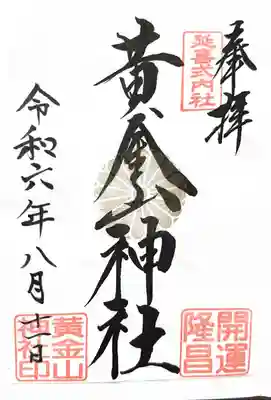 奉拝
延喜式内社
開運
隆昌
黄金山神社
令和六年八月十一日
黄金山
神社印